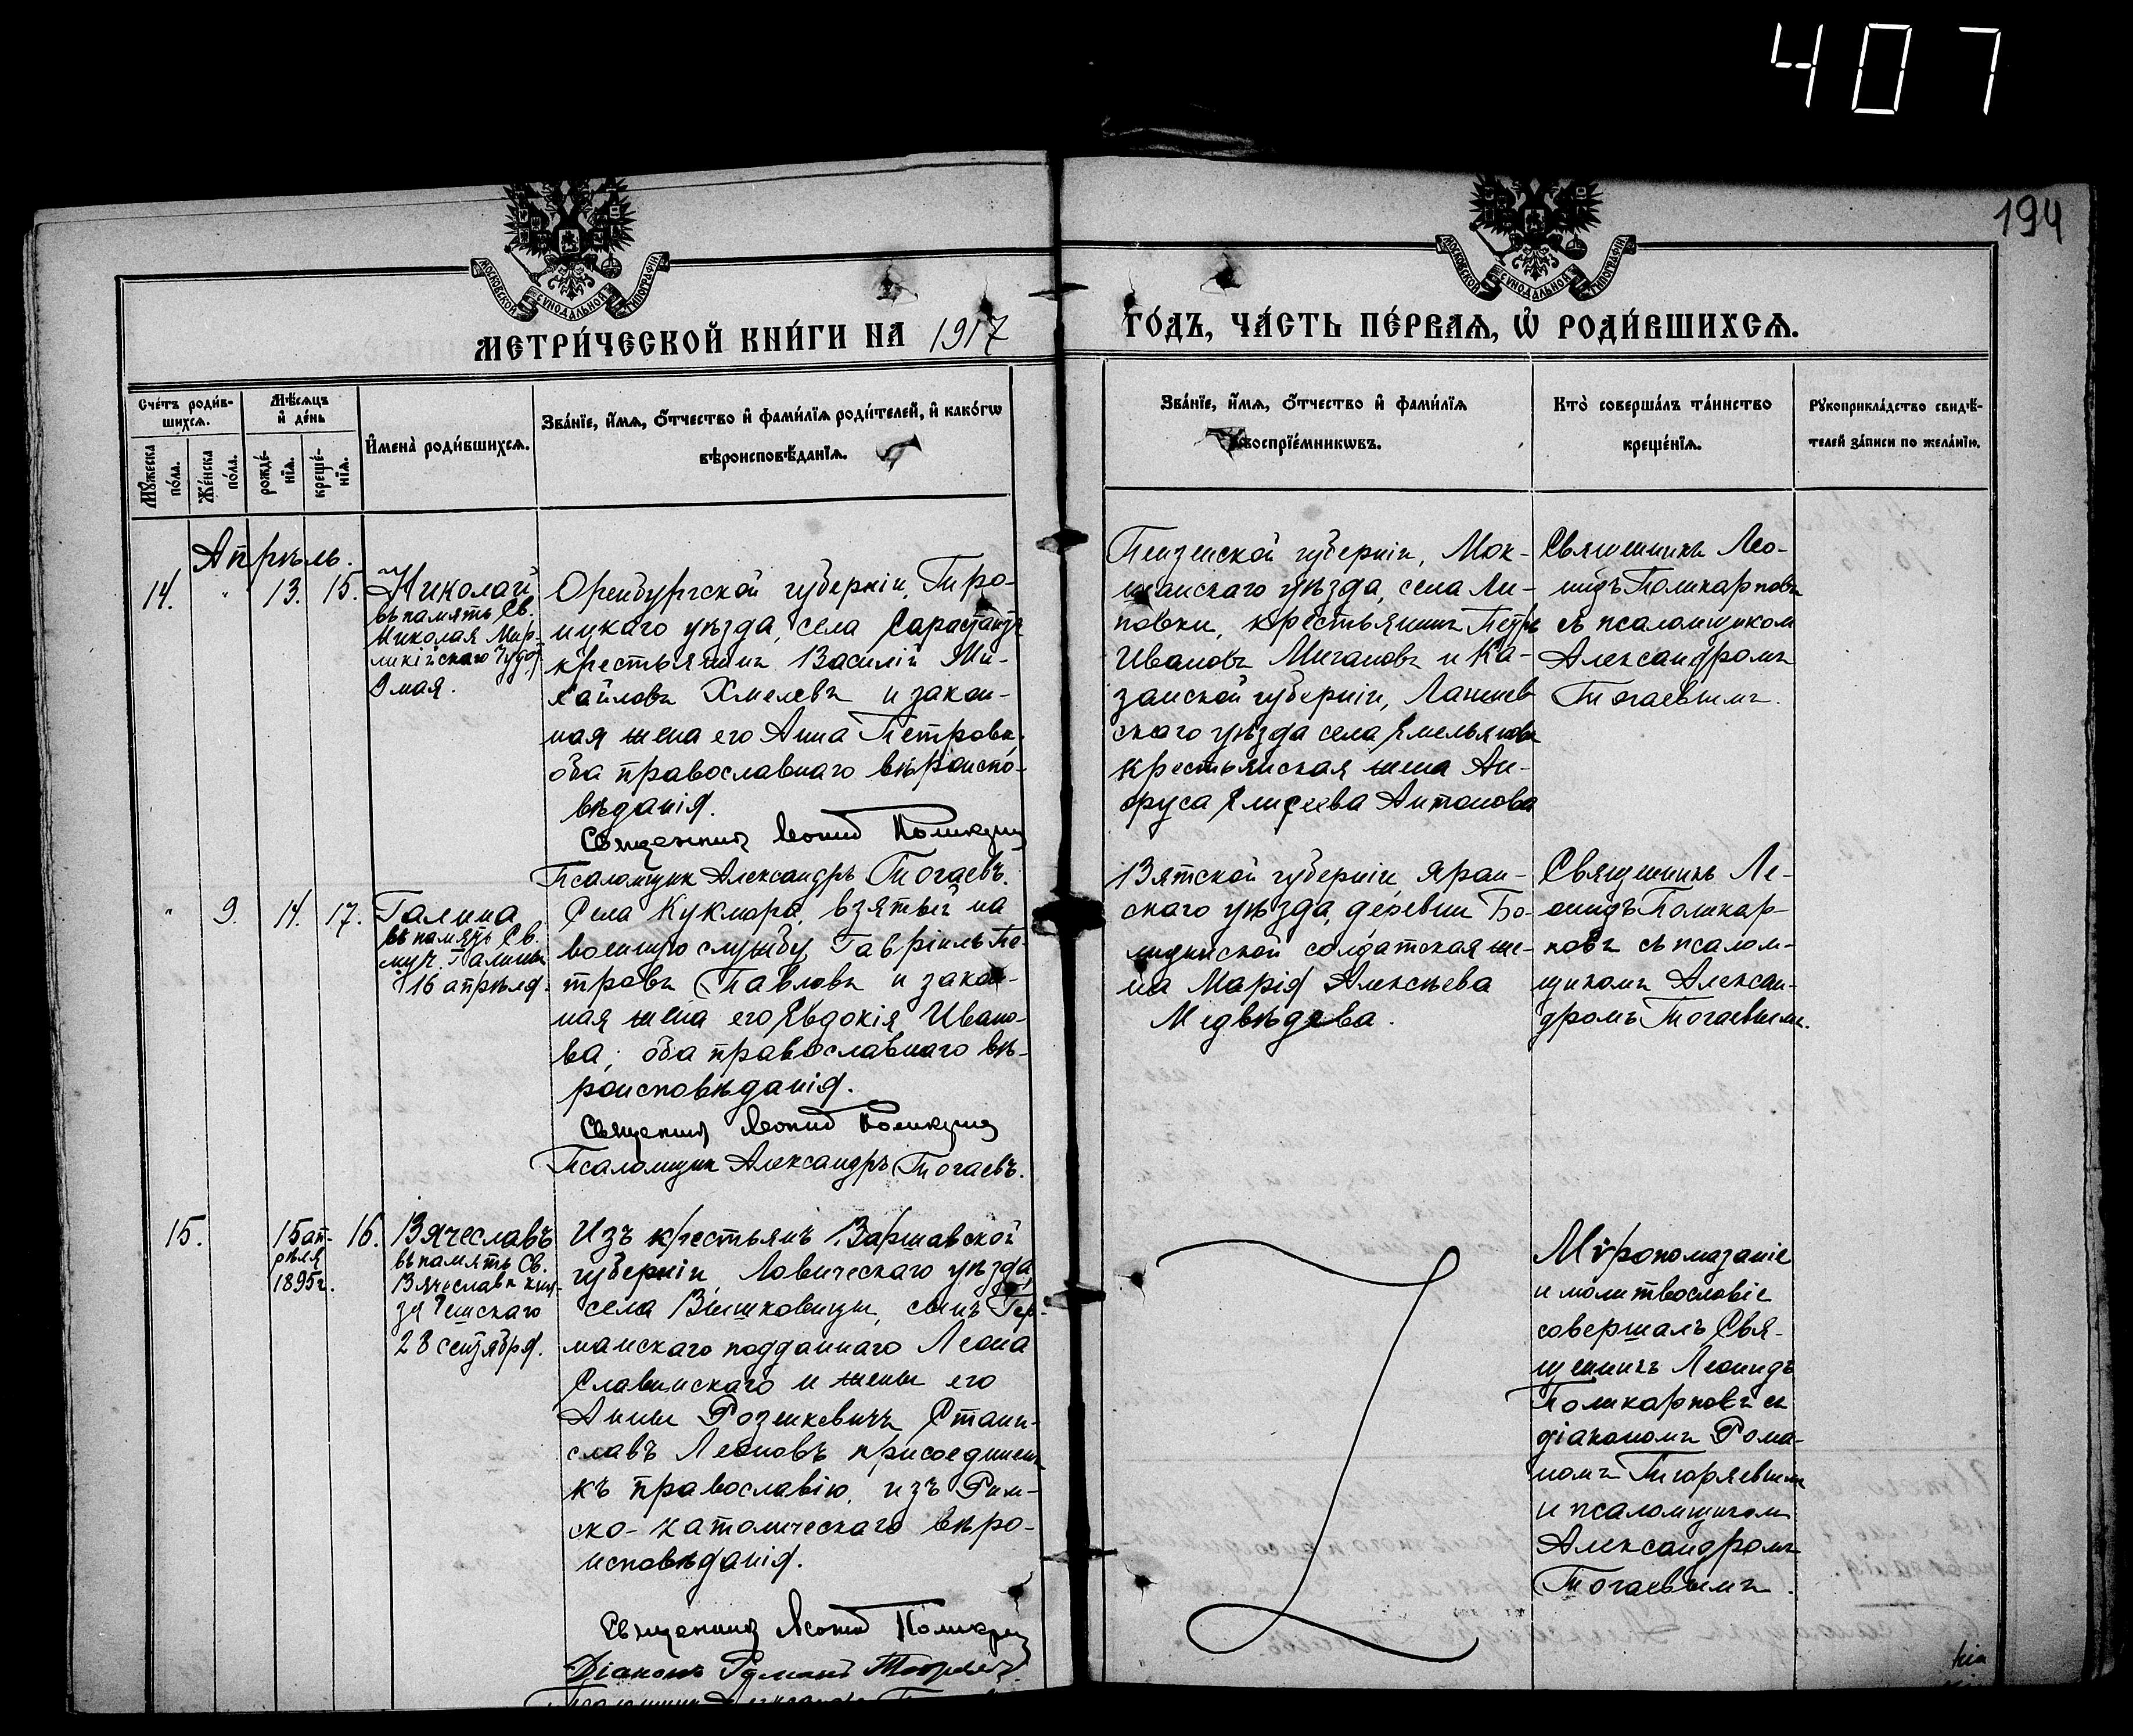 407
194
МОСКОВСКОЙ СѴНОДАЛЬНОЙ ТИПОГРАФІИ
МОСКОВСКОЙ СѴНОДАЛЬНОЙ ТИПОГРАФІИ
МЕТРИ́ЧЕСКОЙ КНИ́ГИ НА 1917
ГО́ДЪ, ЧА́СТЬ ПЕ́РВАѦ, Ѡ҆ РОДИ́ВШИХСѦ.
Сче́тъ роди́в-
шихсѧ.
Мꙋ́жеска
по́ла.
Же́нска
по́ла.
Мѣ́сѧцъ
и҆ де́нь
рожде́-
нїѧ.
креще́-
нїѧ.
И҆мена̀ роди́вшихсѧ.
Зва́нїе, и҆́мѧ, ѻ҆́тчество и҆ фами́лїѧ роди́телей, и҆ како́гѡ
вѣроисповѣ́данїѧ.
Зва́нїе, и҆́мѧ, ѻ҆́тчество и҆ фами́лїѧ
воспрїе́мникѡвъ.
Кто̀ соверша́лъ та́инство
креще́нїѧ.
Рꙋкоприкла́дство свидѣ́-
телей за́писи по жела́нїю.
Апрѣль.
14. " 13. 15.
Николай
въ память Св.
Николая Мир-
ликійскаго Чудот
9 мая.
Оренбургской губерніи, Тро-
ицкаго уѣзда, села
крестьянинъ Василій Ми-
хайловъ Хмелевъ и закон-
ная жена его Анна Петрова,
оба православнаго вѣроиспо-
вѣданія.
Священникъ Леонид Поликарп
Псаломщик Александръ Тогаевъ.
Пензенской губерніи, Мок-
шанскаго уѣзда, села Ли-
повки, крестьянинъ Петръ
Ивановъ Мигановъ и Ка-
занской губерніи, Лаишев
скаго уѣзда села Емельянова
крестьянская жена Ан-
фуса Елисеева Антонова
Священникъ Лео-
нидъ Поликарповъ
съ псаломщиком
Александромъ
Тогаевымъ.
" 9. 14. 17.
Галина
въ память Св.
муч. Галины
16 апрѣля.
Села Кукмора, взятый на
военную службу Гавріилъ Пе-
тровъ Павловъ и закон-
ная жена его Евдокія Ивано-
ва, оба православнаго вѣ-
роисповѣданія.
Священникъ Леонид Поликарп
Псаломщик Александръ Тогаевъ.
Вятской губерніи Яран-
скаго уѣзда, деревни
солдатская же-
на Марія Алексѣева
Медвѣдева.
Священникъ Ле-
онидъ Поликар-
повъ съ псалом-
щикомъ Алексан-
дромъ Тогаевымъ.
15. 15 ап-
рѣля
1895 г.
16.
Вячеславъ
въ память Св.
Вячеслава кня-
зя Чешскаго
28 сентября.
Изъ крестьянъ Варшавской
губерніи, Ловическаго уѣзда,
села Вишковицы, сынъ Гер-
манскаго подданнаго Леона
Славинскаго и жены его
Анны Розенкевичъ Стани-
славъ Леоновъ присоединенъ
къ православію, изъ Рим-
ско-католическаго вѣро-
исповѣданія.
Священникъ Леонид Поликарп
Діаконъ Романъ
Псаломщик Александръ
Мѵропомазаніе
и молитвословіе
совершалъ Свя-
щенникъ Леонидъ
Поликарповъ съ
діакономъ Рома-
номъ
и псаломщиком
Александромъ
Тогаевымъ.